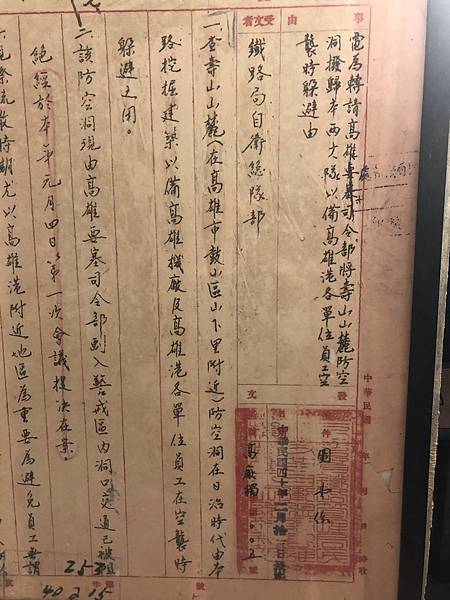 事由
電為轉請高雄要塞司令部將壽山山麓防空
洞撥歸本兩大隊以備高雄港各單位員工空
襲時躲避由
受文者
鐵路局自衛總隊部
一、查壽山山麓（在高雄市鼓山區山下里附近）防空洞在日治時代由本
路挖掘建築以備高雄機廠及高雄港各單位員工在空襲時
躲避之用。
二、該防空洞現由高雄要塞司令部劃入警戒區內洞口交通已被阻
絕經於本年元月四日第一次會議提決在案。
疏散時期尤以高雄港附近地區為重要為避免員工無謂
中華民國
年
月
日
時收
發文
附件
中華民國四十年二月拾
日
高廠獨
號
253
40 2 15